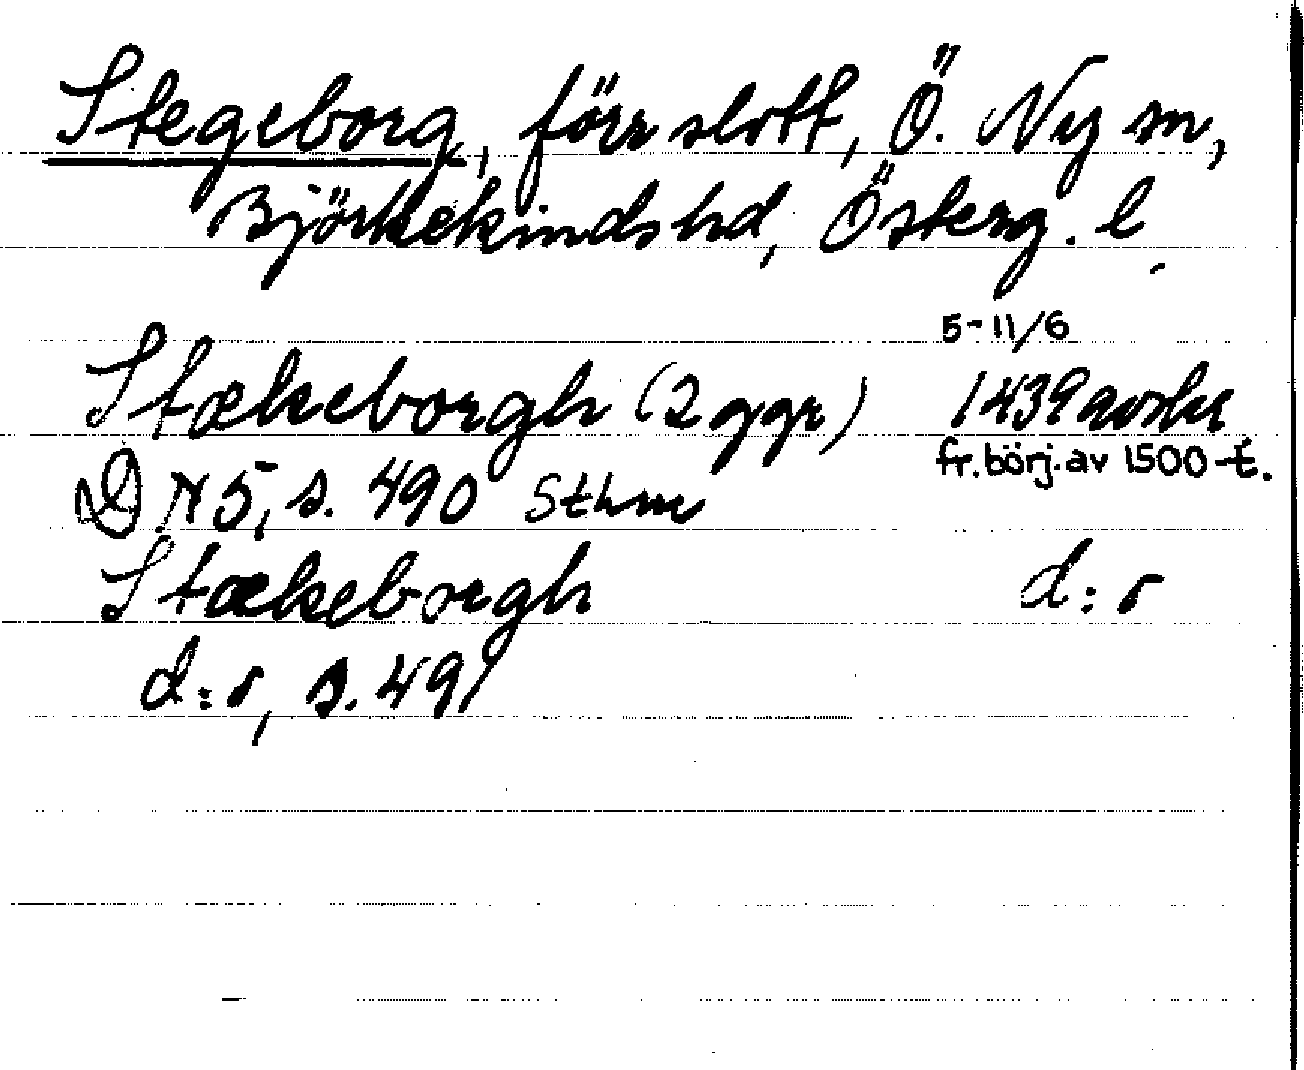 Stegeborg, förr slott, Ö. Ny sn,
Björkekinds hd, Österg. l.
5-11/6
Stækeborgh (2 ggr) 1439 avskr
fr. börj. av 1500-t.
DN 5, s. 490 Sthm
Stækeborgh d:o
d:o, s. 491